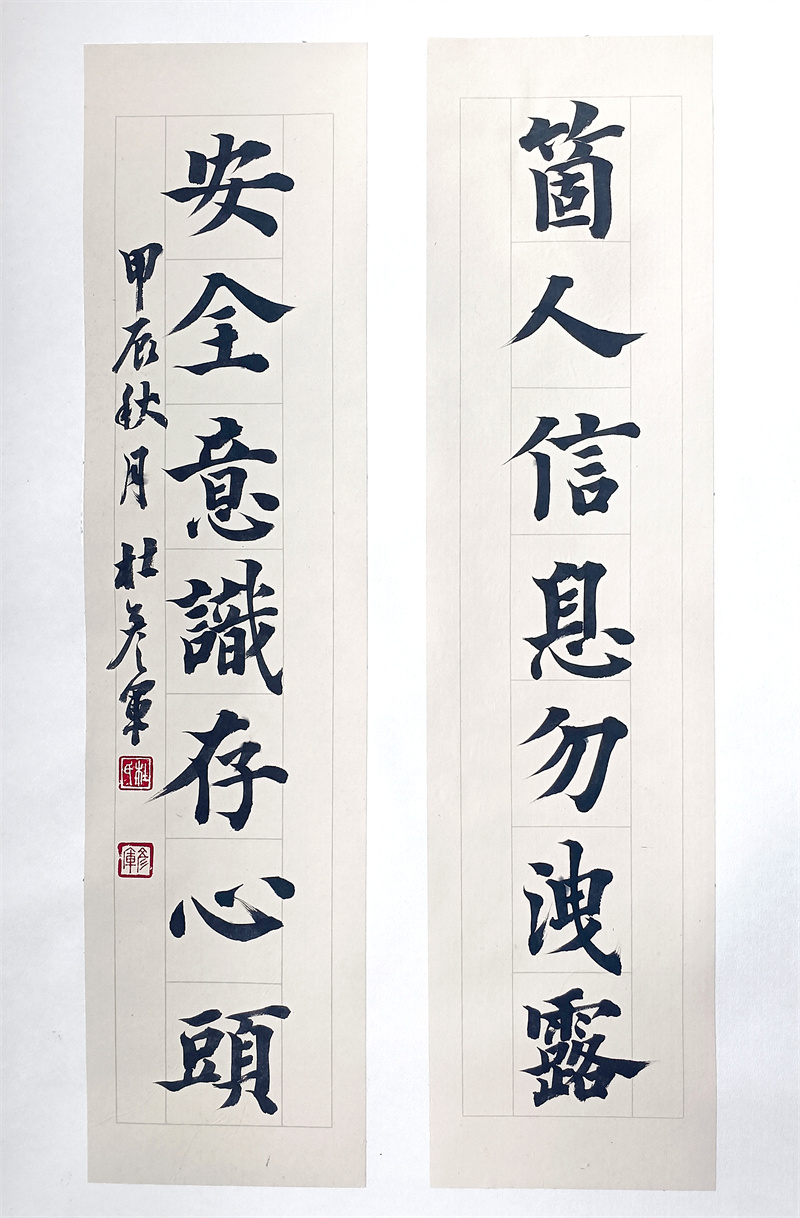 箇人信息勿洩露
安全意識存心頭
甲辰秋月 杜彦軍
杜氏
彦軍